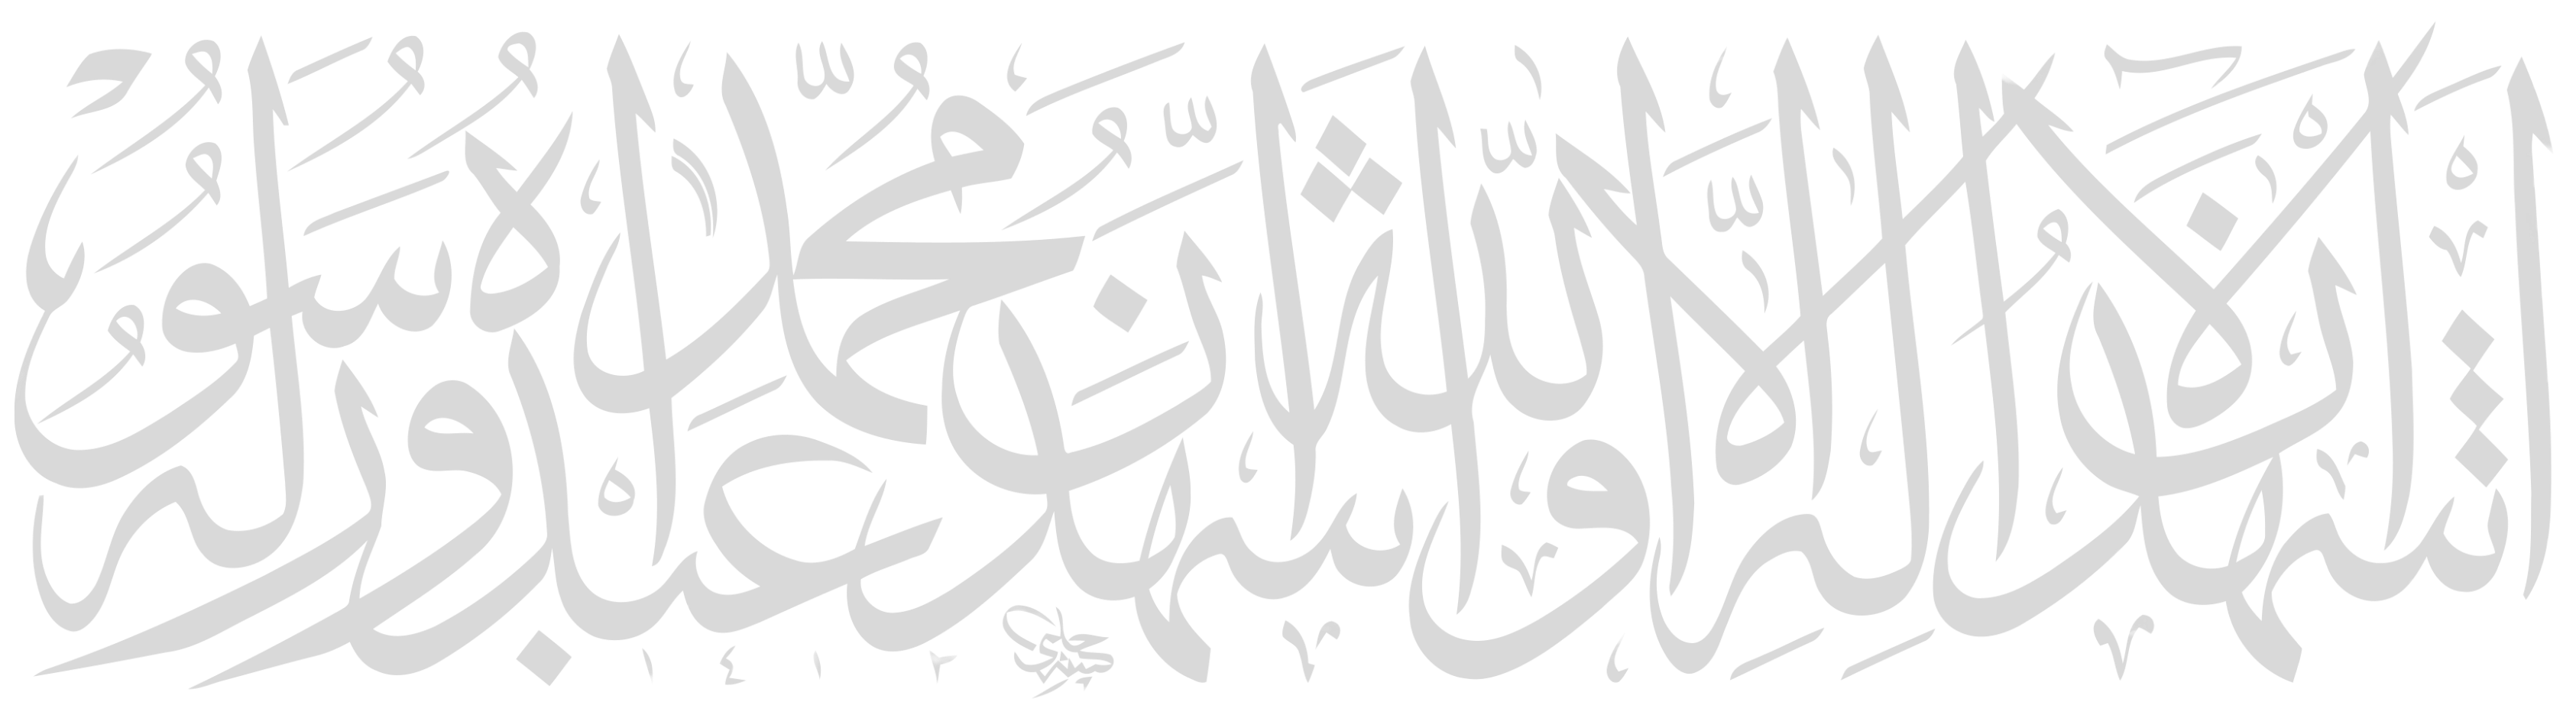 أَشْهَدُ أَنْ لَا إِلٰهَ إِلَّا اللّٰهُ وَأَشْهَدُ أَنَّ مُحَمَّدًا عَبْدُهُ وَرَسُولُهُ
١٤١٢